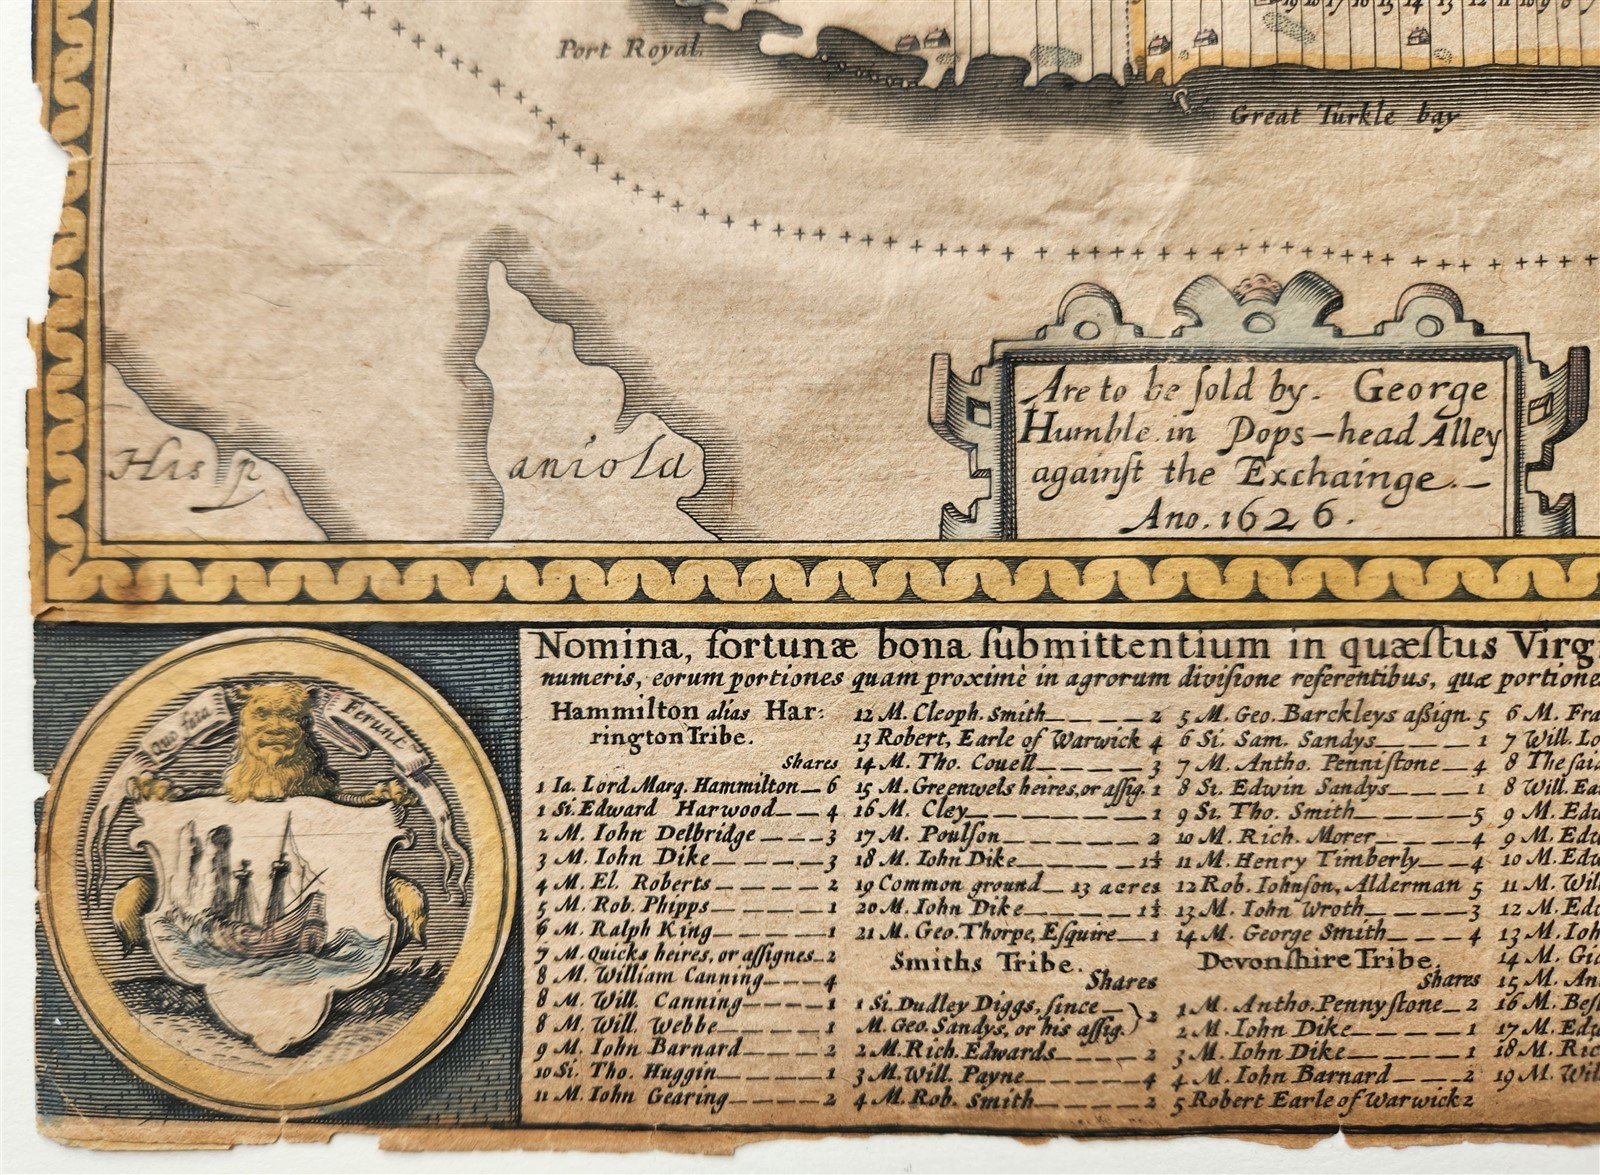 19 18 17 16 15 14 13 12 11 10 9 8 7
Port Royal.
Great Turkle bay
Hisp
aniola
Are to be ſold by. George
Humble in Pops-head Alley
againſt the Exchainge.
Ano. 1626.
Quo fata
Ferunt
Nomina, fortunæ bona ſubmittentium in quæſtus Virg
numeris, eorum portiones quam proximè in agrorum diviſione referentibus, quæ portione
Hammilton alias Har:
rington Tribe.
Shares
1 Ia. Lord Marq. Hammilton 6
1 Si. Edward Harwood 4
2 M. Iohn Delbridge 3
3 M. Iohn Dike 3
4 M. El. Roberts 2
5 M. Rob. Phipps 1
6 M. Ralph King 1
7 M. Quicks heires, or aſſignes 2
8 M. William Canning 4
8 M. Will. Canning 1
8 M. Will. Webbe 1
9 M. Iohn Barnard 2
10 Si. Tho. Huggin 1
11 M. Iohn Gearing 2
12 M. Cleoph. Smith 2
13 Robert, Earle of Warwick 4
14 M. Tho. Couell 3
15 M. Greenwels heires, or aſſig. 1
16 M. Cley 1
17 M. Poulſon 2
18 M. Iohn Dike 1½
19 Common ground 13 acres
20 M. Iohn Dike 1½
21 M. Geo. Thorpe, Eſquire 1
Smiths Tribe.
Shares
1 Si. Dudley Diggs, ſince
M. Geo. Sandys, or his aſſig. } 2
2 M. Rich. Edwards 2
3 M. Will. Payne 4
4 M. Rob. Smith 2
5 M. Geo. Barckleys aſſign. 5
6 Si. Sam. Sandys 1
7 M. Antho. Penniſtone 4
8 Si. Edwin Sandys 1
9 Si. Tho. Smith 5
10 M. Rich. Morer 4
11 M. Henry Timberly 4
12 Rob. Iohnſon, Alderman 5
13 M. Iohn Wroth 3
14 M. George Smith 4
Devonſhire Tribe.
Shares
1 M. Antho. Pennyſtone 2
2 M. Iohn Dike 1
3 M. Iohn Dike 1
4 M. Iohn Barnard 2
5 Robert Earle of Warwick 2
6 M. Fra
7 Will. Lo
8 The ſaid
8 Will. Ea
9 M. Edw
9 M. Edw
10 M. Edw
11 M. Will
12 M. Edw
13 M. Ioh
14 M. Gi
15 M. An
16 M. Beſ
17 M. Edw
18 M. Ric
19 M. Will